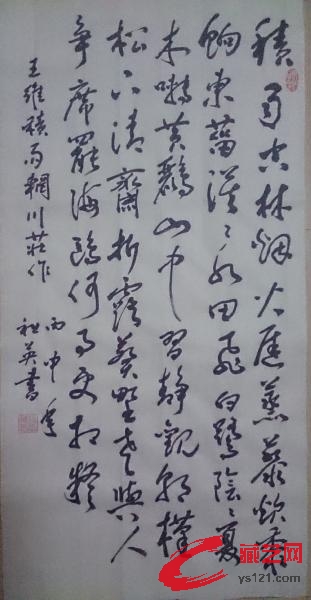 積雨空林烟火遲蒸藜炊黍
餉東菑漠〻水田飛白鷺陰〻夏
木囀黃鸝山中習靜觀朝槿
松下清齋折露葵野老與人
爭席罷海鷗何事更相疑
王維積雨輞川莊作
丙申年
英書
藏艺网
ys121.com